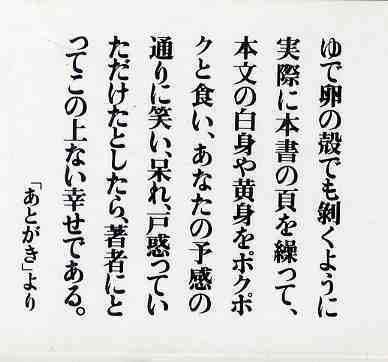 ゆで卵の殻でも剝くように
実際に本書の頁を繰って、
本文の白身や黄身をポクポ
クと食い、あなたの予感の
通りに笑い、呆れ、戸惑ってい
ただけたとしたら、著者にと
ってこの上ない幸せである。
「あとがき」より